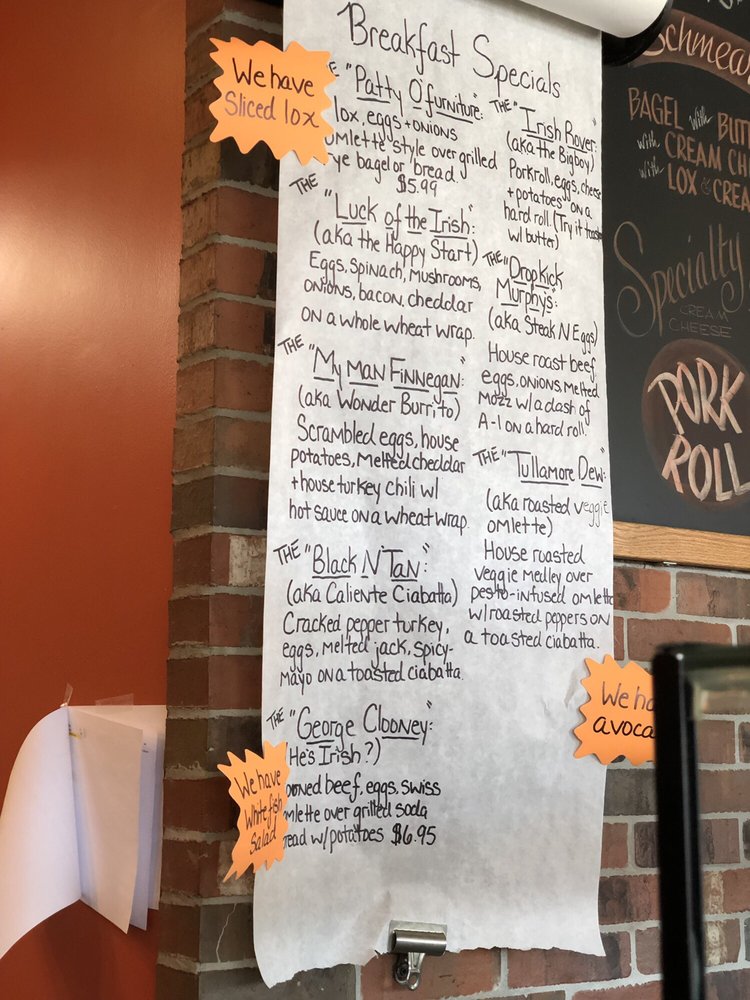 Breakfast Specials
We have
Sliced lox
"Patty O'furniture":
lox, eggs + onions
omlette style over grilled
rye bagel or bread.
$5.99
THE
"Luck of the Irish:"
(aka the Happy Start)
Eggs, Spinach, Mushrooms,
onions, bacon, cheddar
on a whole wheat wrap.
THE
"My Man Finnegan:"
(aka Wonder Burrito)
Scrambled eggs, house
potatoes, Melted cheddar
+ house turkey chili w/
hot sauce on a wheat wrap.
THE "Black N Tan":
(aka Caliente Ciabatta)
Cracked pepper turkey,
eggs, melted jack, spicy-
mayo on a toasted ciabatta.
THE "George Clooney":
(He's Irish?)
eggs, swiss
over grilled soda
w/potatoes $6.95
We have
White fish
Salad
THE "Irish Rover:"
(aka the Bigboy)
Porkroll, eggs, cheese
+ potatoes on a
hard roll. (Try it
w/ butter)
THE "Dropkick
Murphys":
(aka Steak N Eggs)
House roast beef,
eggs, onions melted
mozz w/ a dash of
A-1 on a hard roll.
THE "Tullamore Dew:"
(aka roasted veggie
omlette)
House roasted
veggie medley over
pesto-infused omlette
w/ roasted peppers on
a toasted ciabatta.
We
avoca
Schmear
BAGEL with BUTT
with CREAM CH
with LOX & CREA
Specialty
CREAM
CHEESE
PORK
ROLL